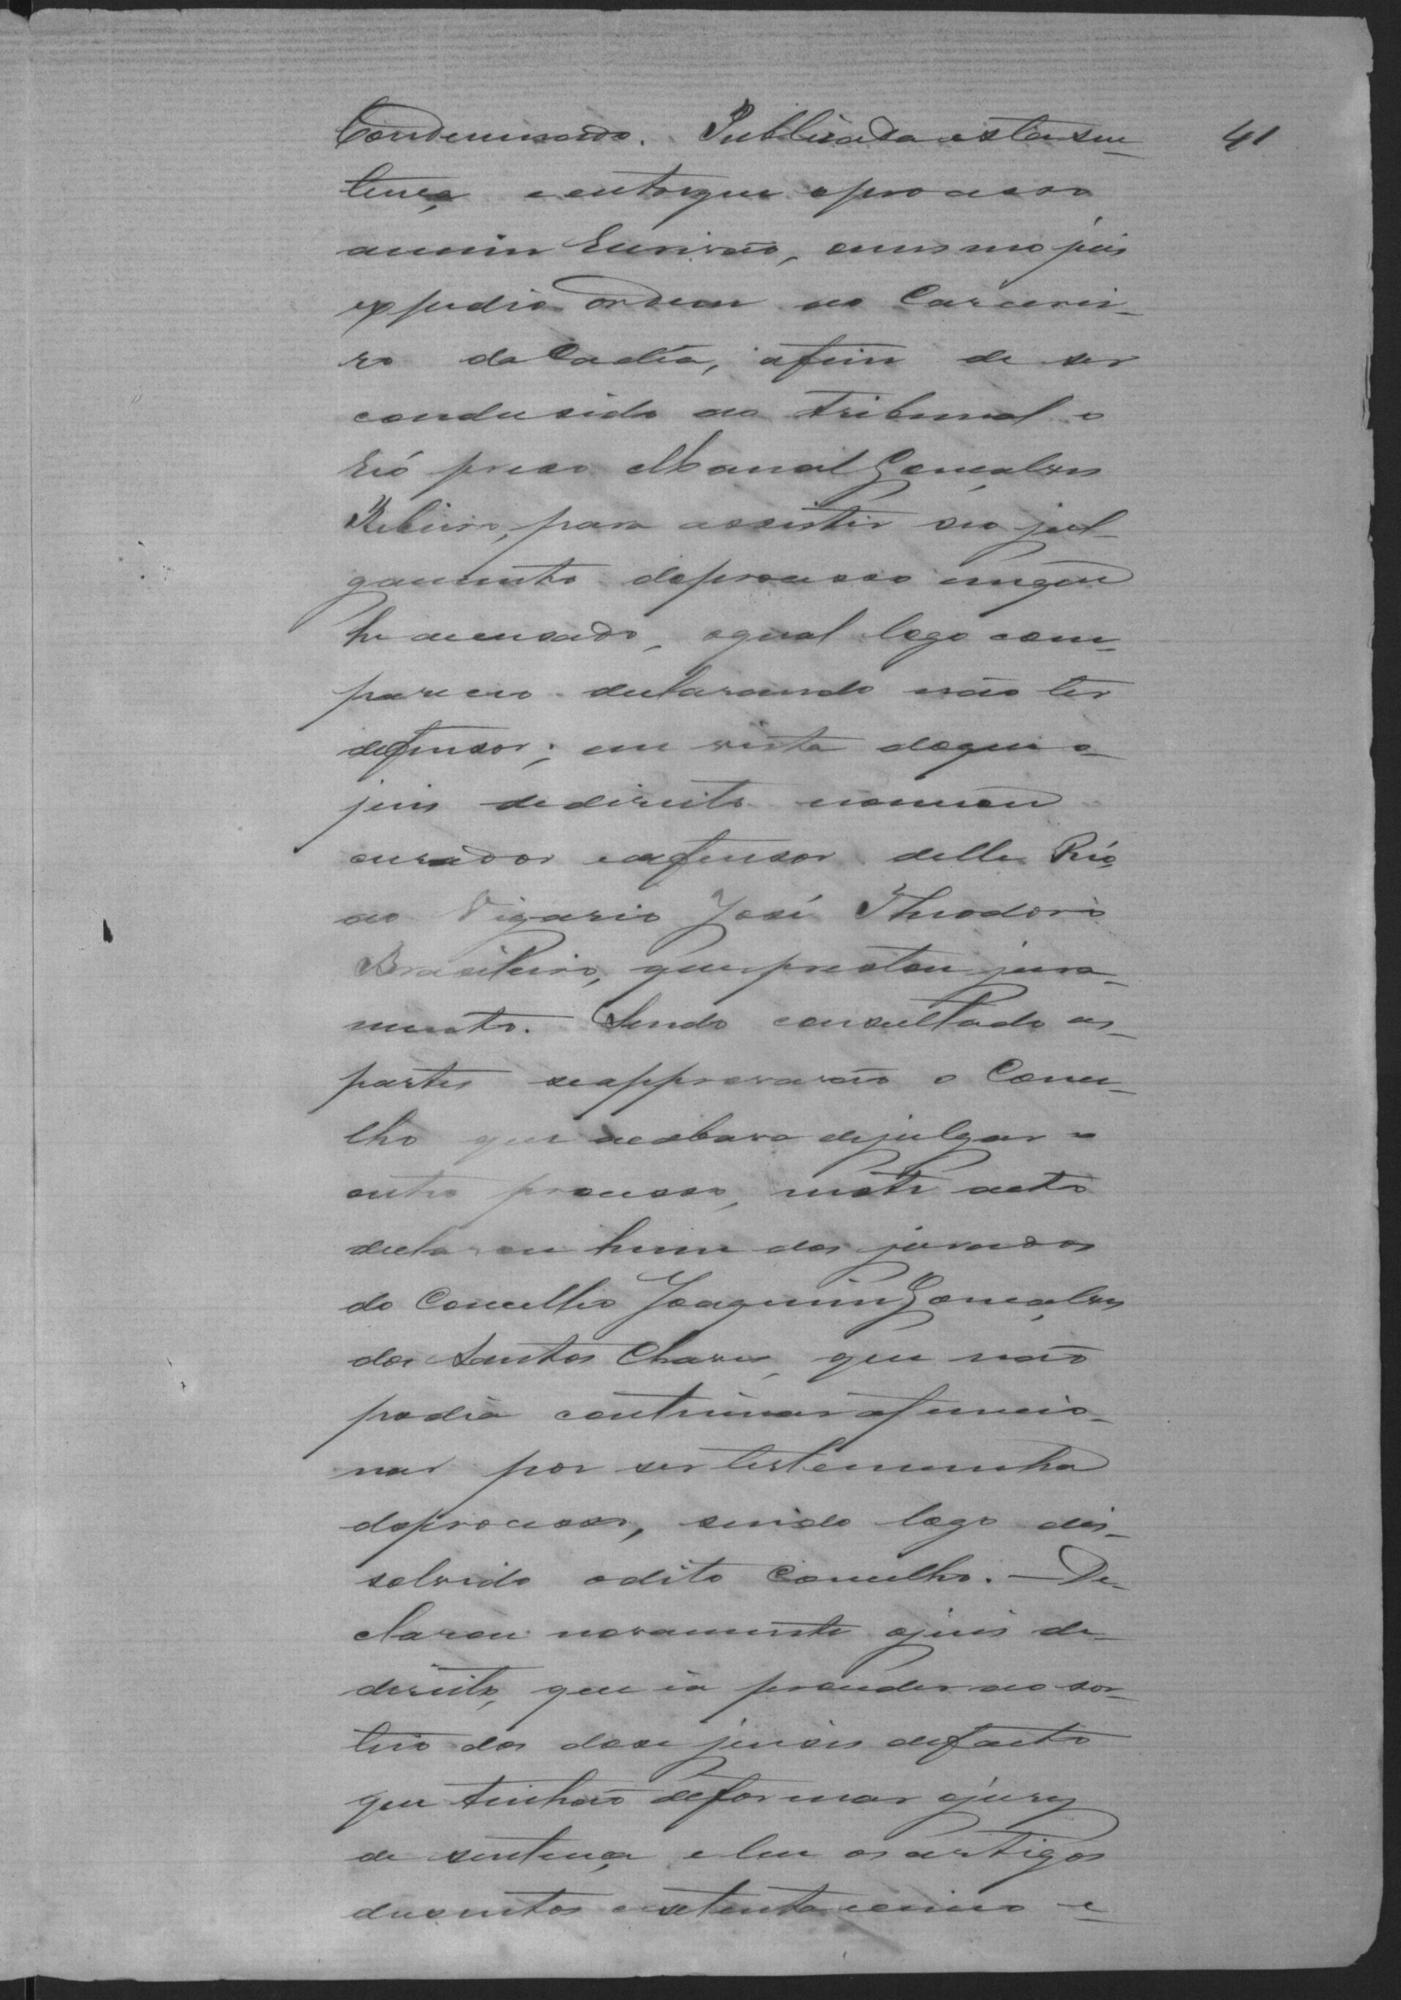 Condemnado. Publicada esta sen- 41
tença, e entregue o processo
a mim Escrivão, o mesmo juis
expedio ordem ao Carcerei-
ro da Cadêa, afim de ser
condusido ao tribunal o
Réo preso Manoel Gonçalves
Ribeiro, para assistir seo jul-
gamento do processo em que
he accusado, o qual logo com-
pareceo declarando não ter
defensor; em vista do que o
juis de direito nomeou
curador e defensor delle Réo,
ao Vigario José Theodoro
Brasileiro, que prestou jura-
mento. Sendo consultado as
partes se approvavão o Conce-
lho que acabava de julgar o
outro processo, n'este acto
declarou hum dos jurados
do Concelho Joaquim Gonçalves
dos Santos Chaves, que não
podia continuar a funccio-
nar por ser testemunha
do processo, sendo logo dis-
solvido o dito Concelho. — De-
clarou novamente o juis de
direito, que ia proceder ao sor-
teio dos dose juises de facto
que tinhão de formar o jury
de sentença e leu os artigos
dusentos e setenta e cinco e